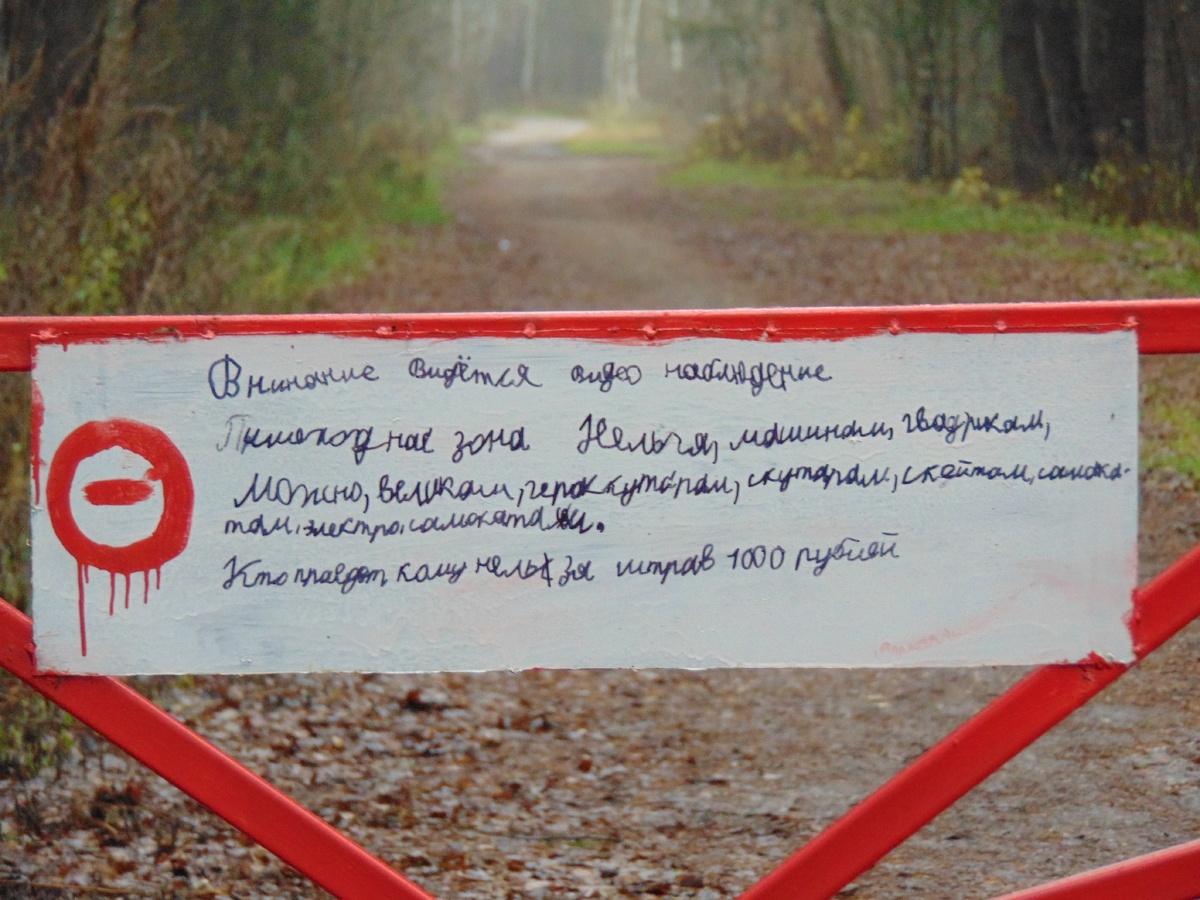 Внинание видётся видео наблюдение
Пишеходная зона Нельзя, машинам, гвадрикам,
Можно, великам, героскутарам, скутарам, скейтам, самока-
там, электро, самокатами.
Кто праедет кому нельзя штрав 1000 рублей